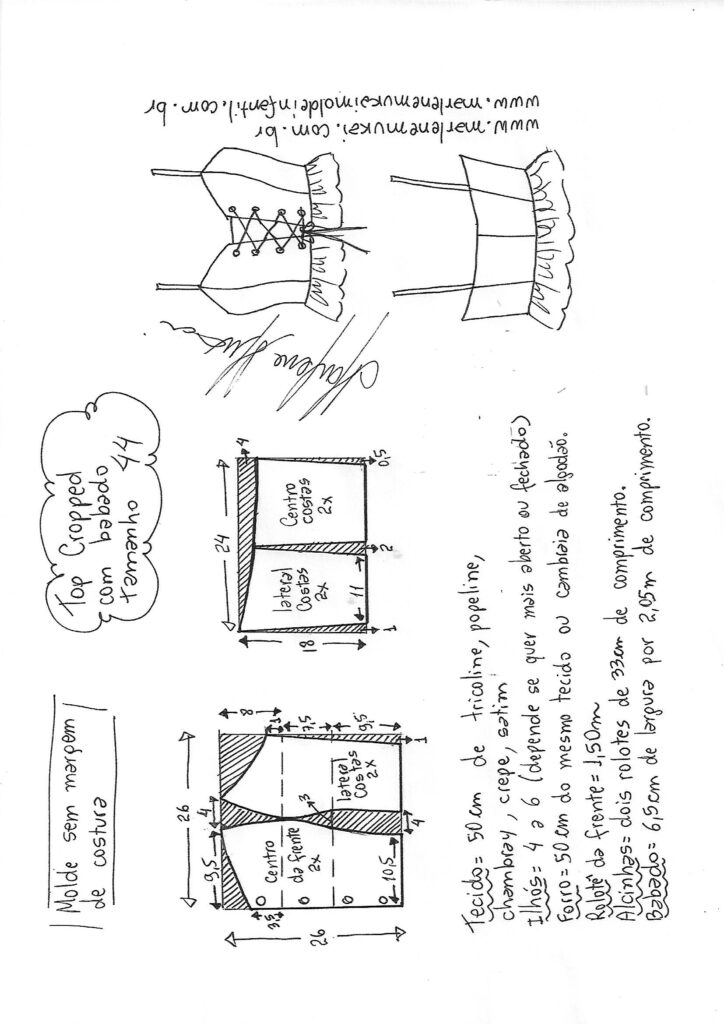 Molde sem margem
de costura
Top Cropped
com babado
tamanho 44
26
9,5
4
8
1
7,5
9,5
3
Centro
da frente
2x
lateral
Costas
2x
3,5
10,5
4
1
26
24
4
18
lateral
Costas
2x
Centro
costas
2x
11
1
2
0,5
Marlene Mukai
www.marlenemukai.com.br
www.marlenemukaimoldeinfantil.com.br
Tecido= 50cm de tricoline, popeline,
chambray, crepe, satim
Ilhós= 4 a 6 (depende se quer mais aberto ou fechado)
Forro= 50cm do mesmo tecido ou cambraia de algodão.
Rolotê da frente= 1,50m
Alcinhas= dois rolotes de 33cm de comprimento.
Babado= 6,5cm de largura por 2,05m de comprimento.